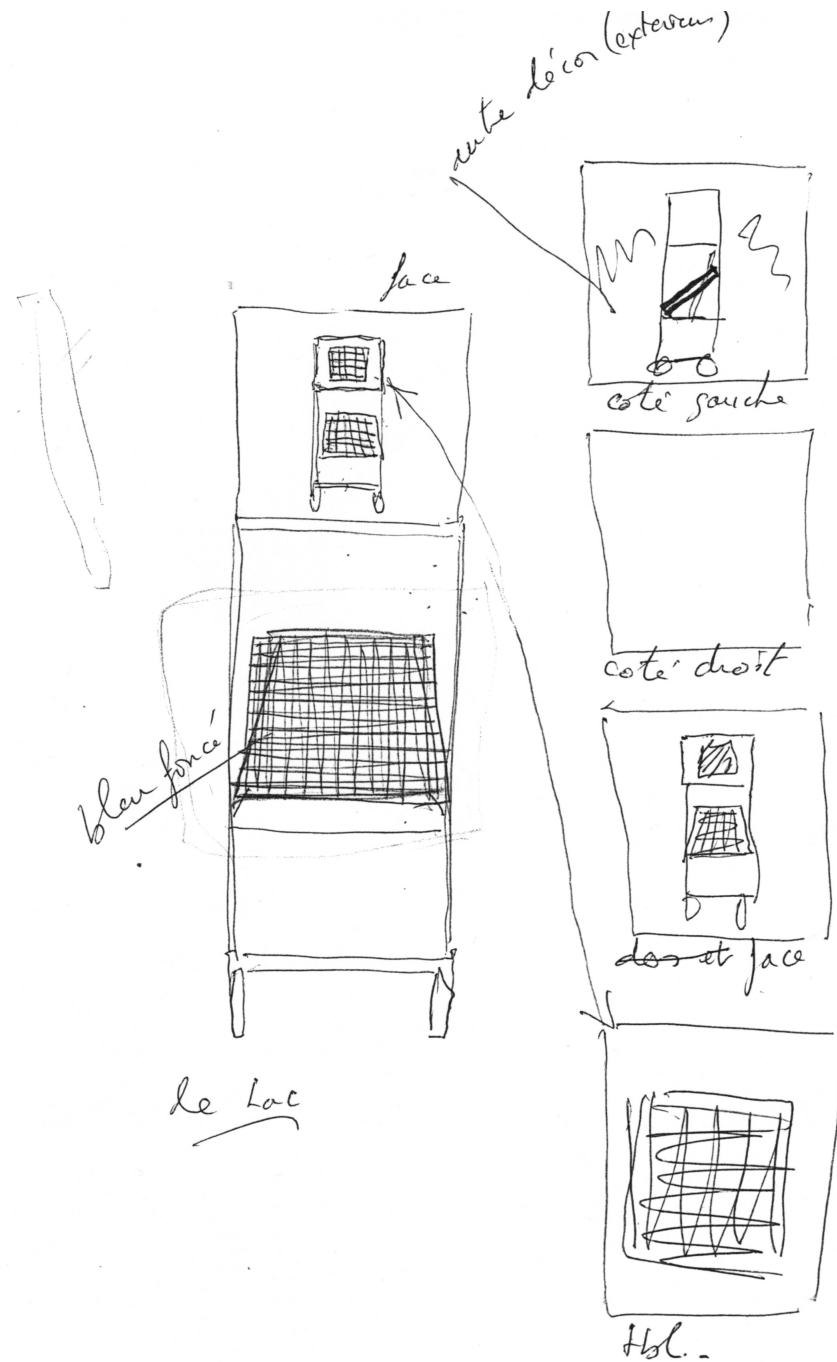 autre décor (extérieur)
face
coté gauche
coté droit
bleu foncé
dos et face
Le Lac